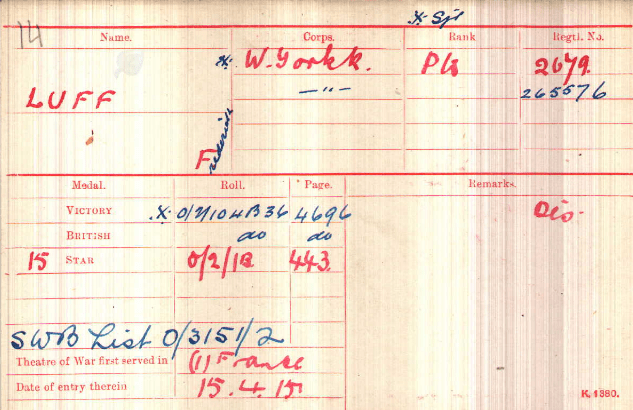 14
X. Sjt
Name. Corps. Rank Regtl. No.
X. W. Yorkk. Pte 2679.
LUFF —"— 265576
Frederick
Medal. Roll. Page. Remarks.
VICTORY X. 0/1/104B36 4696 Dis.
BRITISH do do
15 STAR 0/2/1B 443.
SWB List 0/3151/2
Theatre of War first served in (1) France
Date of entry therein 15.4.15
K. 1380.